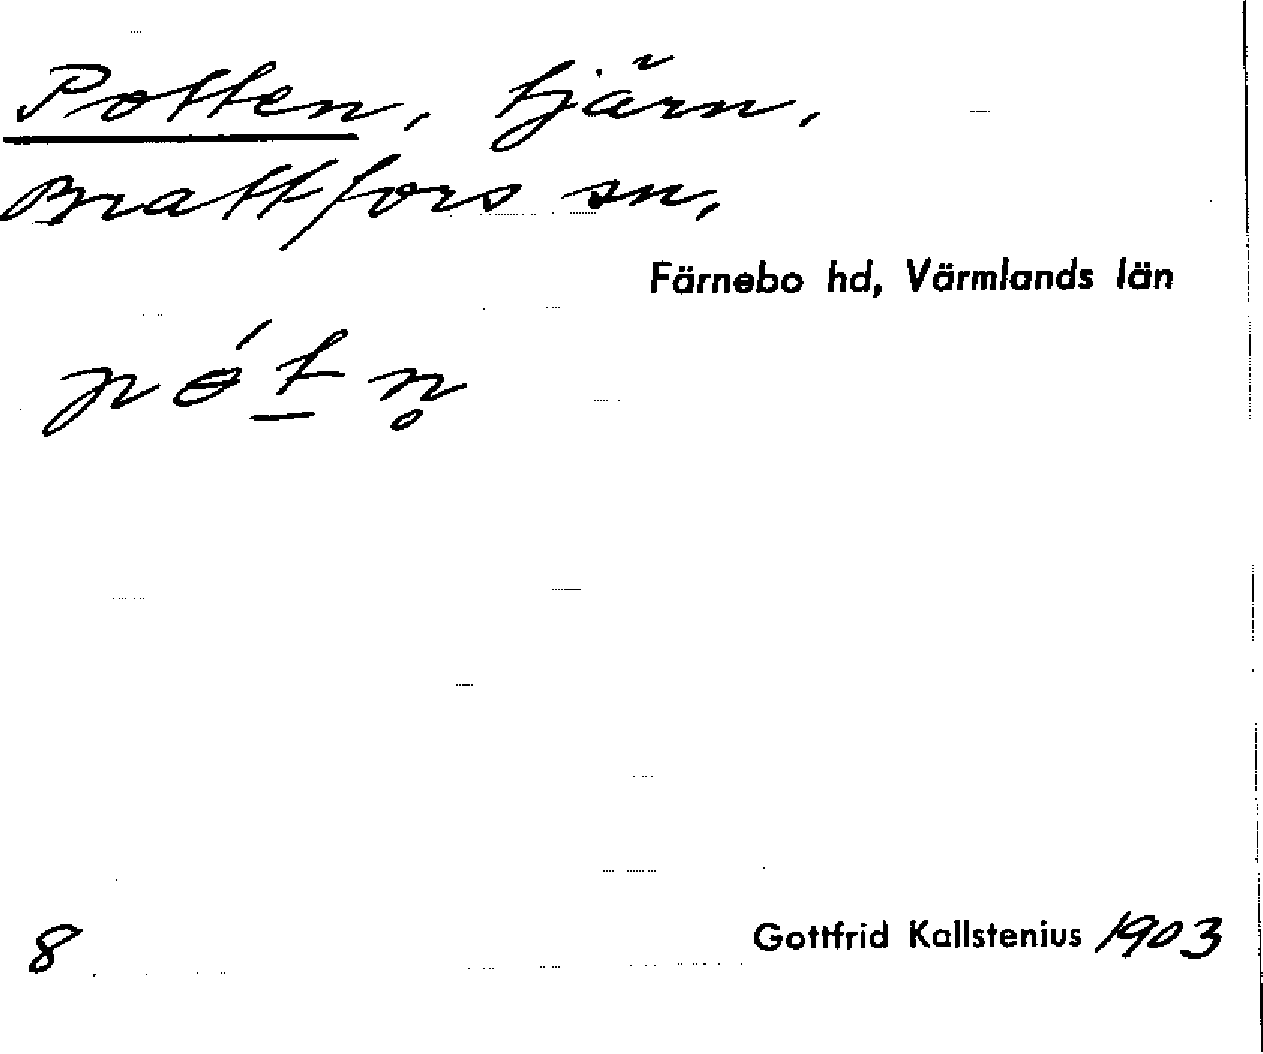 Potten, tjärn,
Brattfors sn,
Färnebo hd, Värmlands län
pɵ́t̲n̥
8 Gottfrid Kallstenius 1903